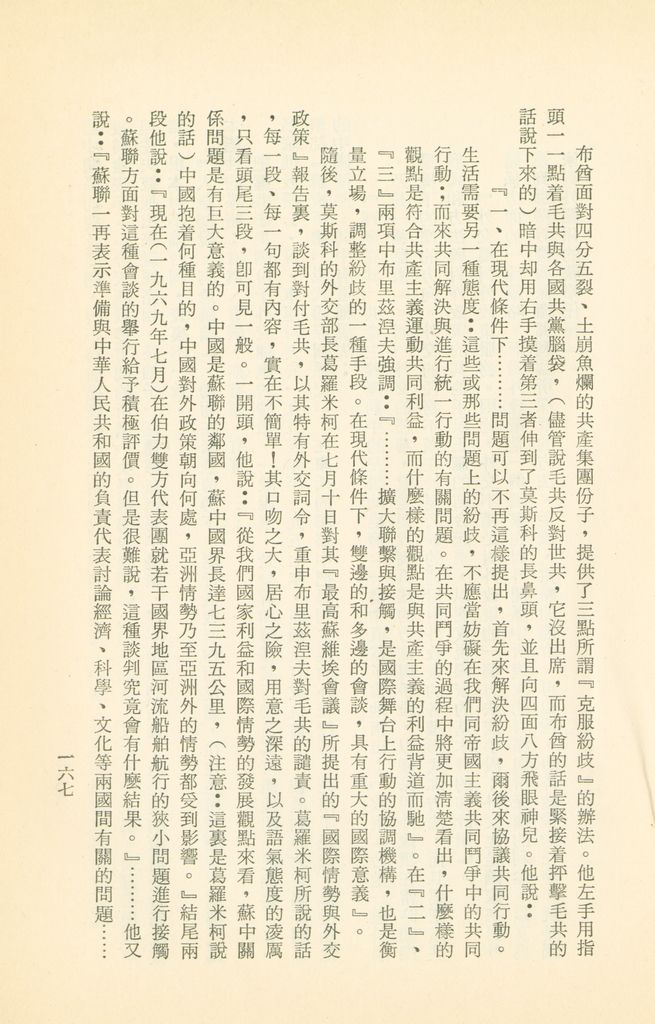 布酋面對四分五裂、土崩魚爛的共產集團份子，提供了三點所謂『克服紛歧』的辦法。他左手用指
頭一一點着毛共與各國共黨腦袋，（儘管說毛共反對世共，它沒出席，而布酋的話是緊接着抨擊毛共的
話說下來的）暗中却用右手摸着第三者伸到了莫斯科的長鼻頭，並且向四面八方飛眼神兒。他說：
『一、在現代條件下………問題可以不再這樣提出，首先來解決紛歧，爾後來協議共同行動。
生活需要另一種態度：這些或那些問題上的紛歧，不應當妨礙在我們同帝國主義共同鬥爭中的共同
行動；而來共同解決與進行統一行動的有關問題。在共同鬥爭的過程中將更加清楚看出，什麼樣的
觀點是符合共產主義運動共同利益，而什麼樣的觀點是與共產主義的利益背道而馳』。在『二』、
『三』兩項中布里茲涅夫強調：『………擴大聯繫與接觸，是國際舞台上行動的協調機構，也是衡
量立場，調整紛歧的一種手段。在現代條件下，雙邊的和多邊的會談，具有重大的國際意義』。
隨後，莫斯科的外交部長葛羅米柯在七月十日對其『最高蘇維埃會議』所提出的『國際情勢與外交
政策』報告裏，談到對付毛共，以其特有外交詞令，重申布里茲涅夫對毛共的譴責。葛羅米柯所說的話
，每一段、每一句都有內容，實在不簡單！其口吻之大，居心之險，用意之深遠，以及語氣態度的凌厲
，只看頭尾三段，卽可見一般。一開頭，他說：『從我們國家利益和國際情勢的發展觀點來看，蘇中關
係問題是有巨大意義的。中國是蘇聯的鄰國，蘇中國界長達七三九五公里，（注意：這裏是葛羅米柯說
的話）中國抱着何種目的，中國對外政策朝向何處，亞洲情勢乃至亞洲外的情勢都受到影響。』結尾兩
段他說：『現在（一九六九年七月）在伯力雙方代表團就若干國界地區河流船舶航行的狹小問題進行接觸
。蘇聯方面對這種會談的舉行給予積極評價。但是很難說，這種談判究竟會有什麼結果。』………他又
說：『蘇聯一再表示準備與中華人民共和國的負責代表討論經濟、科學、文化等兩國間有關的問題……
一六七